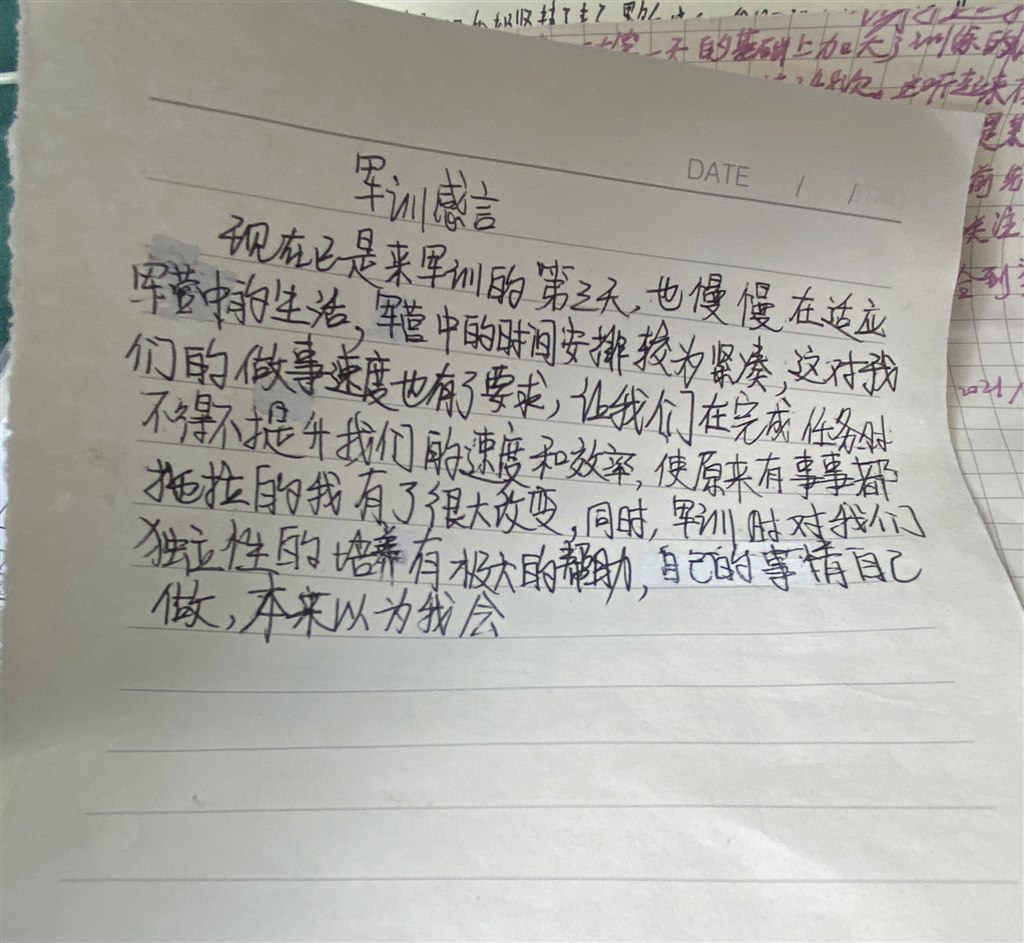 不的基础上加大了训练的
DATE / /
军训感言
现在已是来军训的第三天,也慢慢在适应
军营中的生活,军营中的时间安排较为紧凑,这对我
们的做事速度也有了要求,让我们在完成任务时
不得不提升我们的速度和效率,使原来有事事都
拖拉的我有了很大改变,同时,军训时对我们
独立性的培养有极大的帮助,自己的事情自己
做,本来以为我会
前先
关注
签到
2021